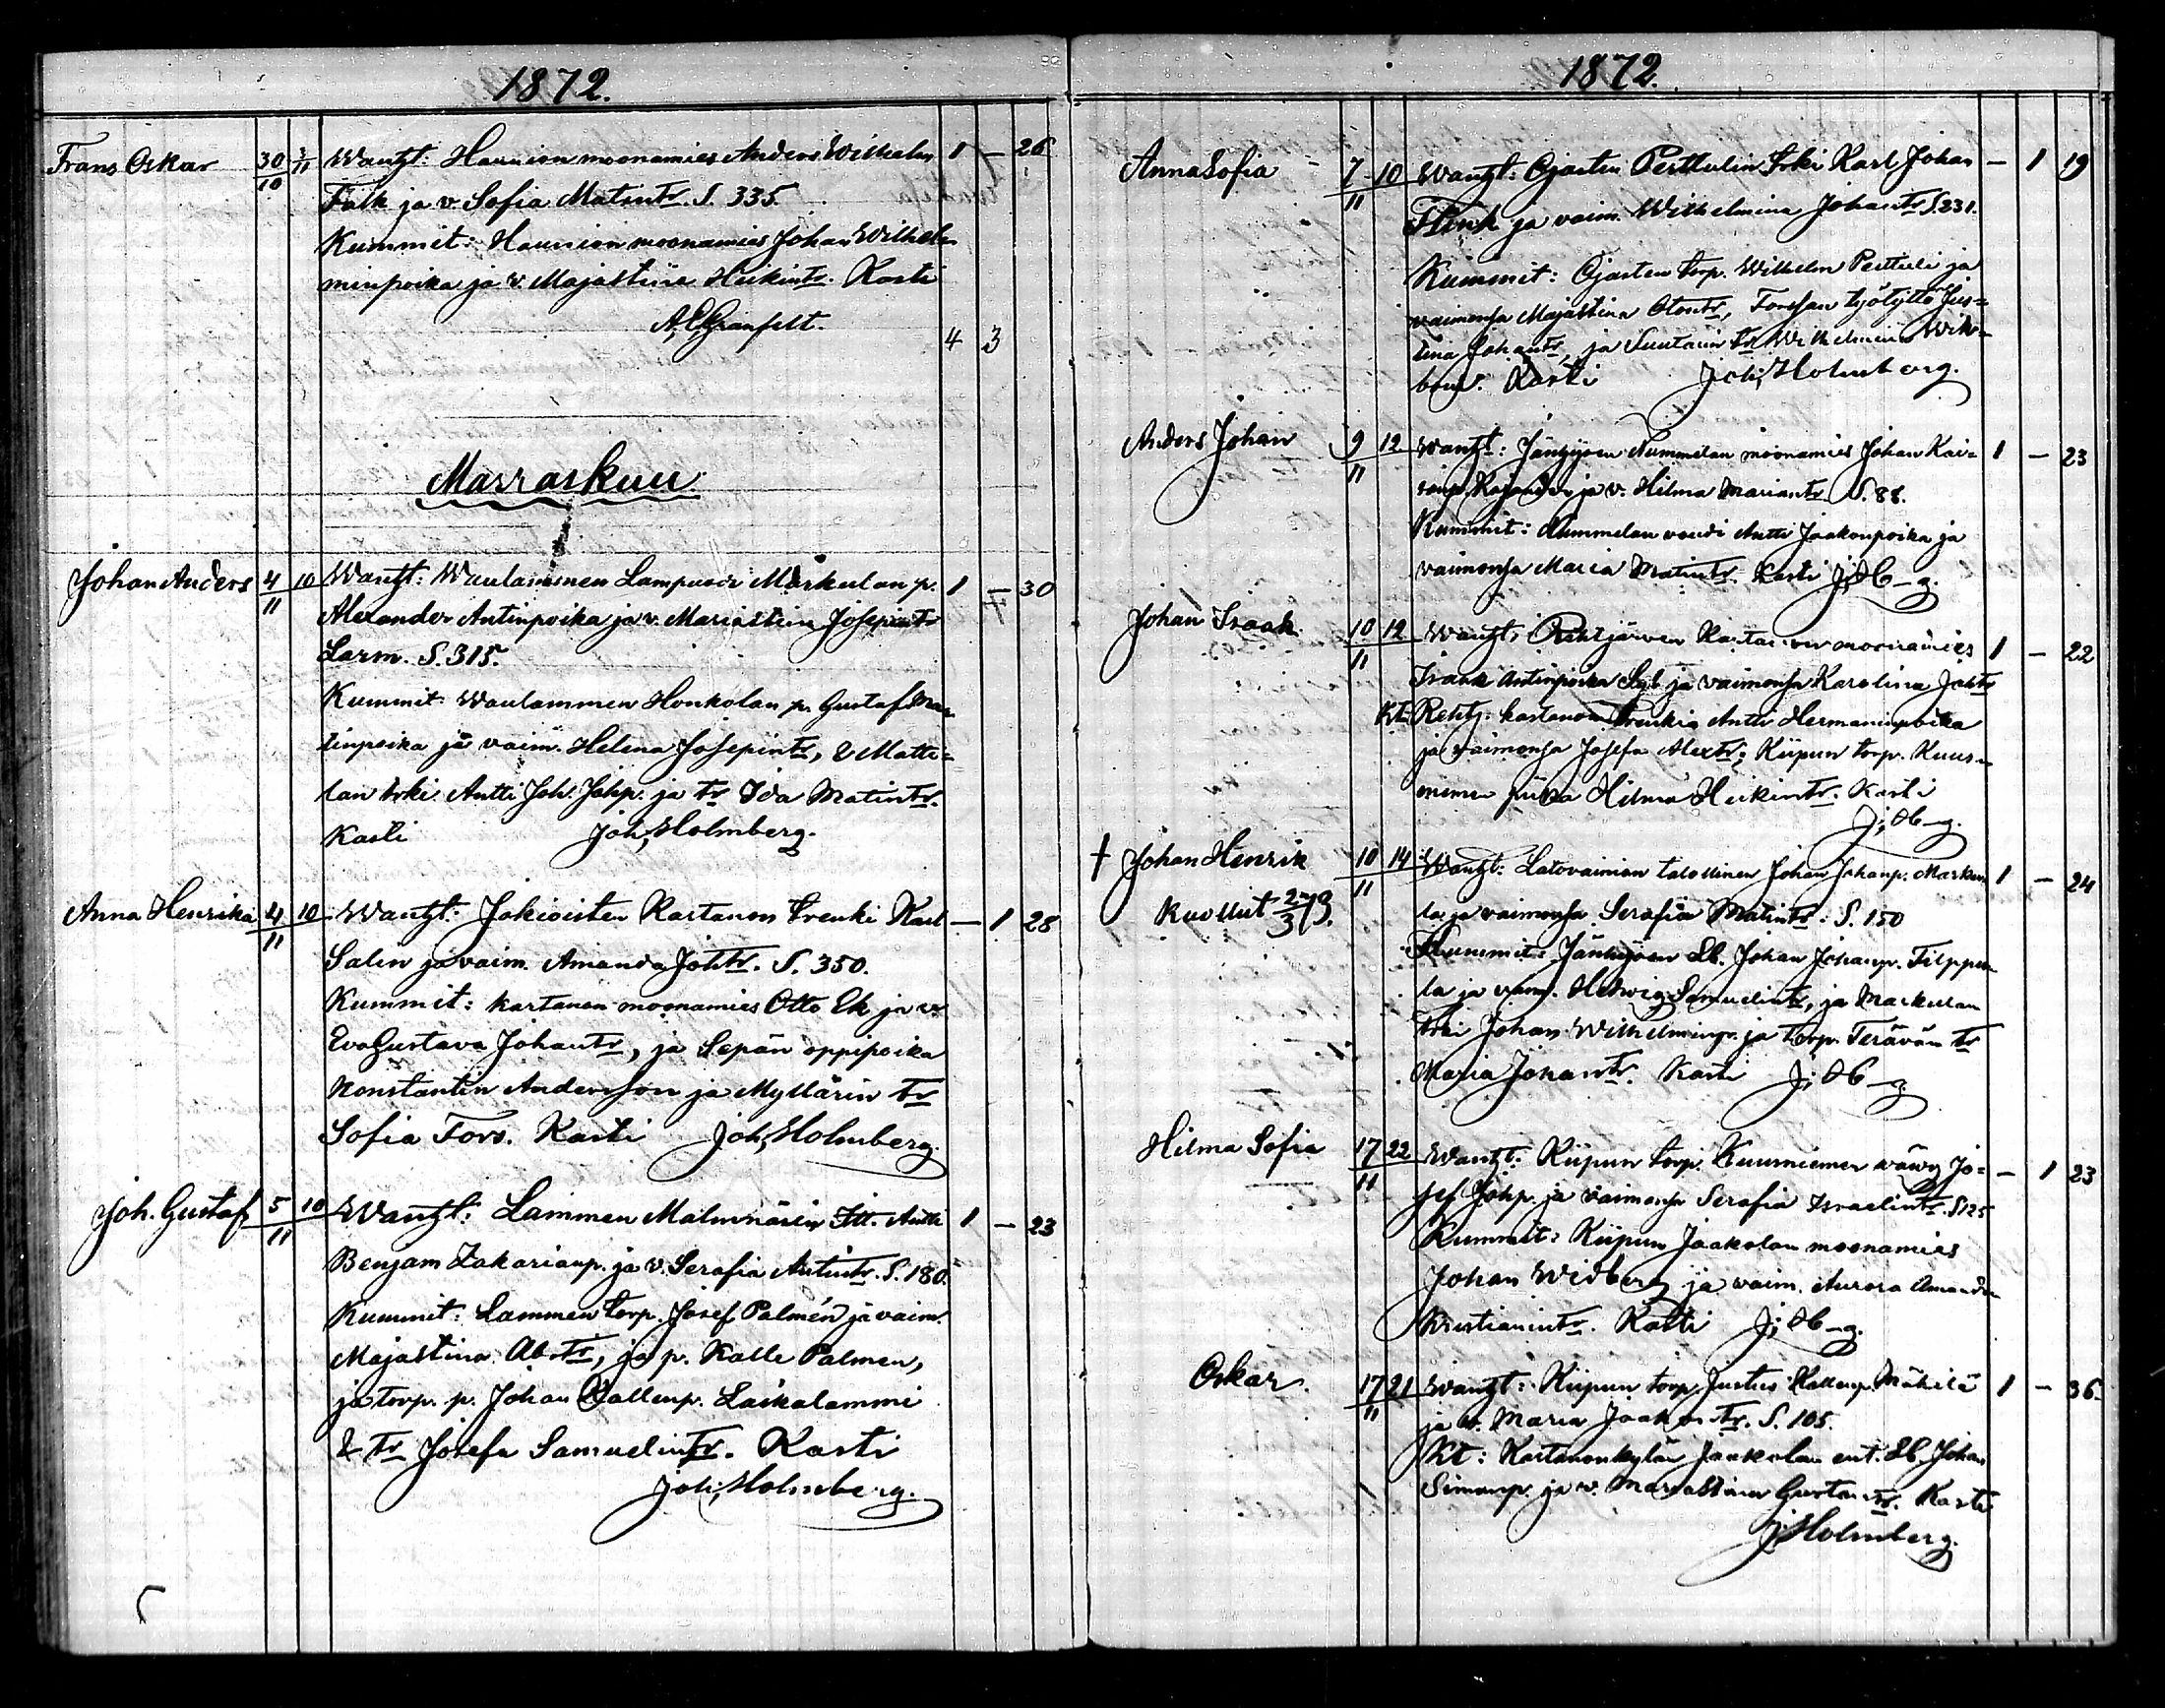 1872.
Frans Oskar 30/10 3/11 Wanht: Haunion moonamies Anders Wilhelm 1 — 26
Falk ja v. Sofia Matintr. S. 335.
Kummit: Haunion moonamies Johan Wilhel-
minpoika ja v. Majastiina Heikintr. Kasti
A. E. Granfelt.
4 3
Marraskuu
Johan Anders 4/11 10 Wanht: Waulammen Markulan p. 1 — 30
Alexander Antinpoika ja v. Mariastiina Josepintr
Larm. S. 315.
Kummit: Waulammen Honkolan p. Gustaf Mar-
tinpoika ja vaim. Helena Josepintr, & Matti-
lan trki Antti Joh. Johp. ja tr Ida Matintr.
Kasti Joh. Holmberg.
Anna Henrika 4/11 10 Wanht: Jokioisten Kartanon trenki Karl — 1 28
Salin ja vaim. Amanda Johtr. S. 350.
Kummit: kartanon moonamies Otto Ek ja v
Eva Gustava Johantr, ja Sepän oppipoika
Konstantin Andersson ja Myllärin tr
Sofia Fors. Kasti Joh. Holmberg.
Joh. Gustaf 5/11 10 Wanht: Lammen Antti 1 — 23
Benjam Zakarianp. ja v. Serafia Antintr. S. 180.
Kummit: Lammen torp. Josef Palmén ja vaim.
Majastina Abrtr, ja p. Kalle Palmen,
ja torp. p. Johan Kallenp. Laikalammi
& tr Josefa Samuelintr. Kasti
Joh. Holmberg.
1872.
Anna Sofia 7/11 10 Wanht: Ojasten Perttulin trki Karl Johan — 1 19
Flink ja vaim. Wilhelmina Johantr S. 231.
Kummit: Ojasten torp. Wilhelm Perttuli ja
vaimonsa Majastina Otontr, Forssan työtyttö Jus-
tina Johantr, ja Suutarin tr Wilhelmina Wik-
bom. Kasti Joh. Holmberg.
Anders Johan 9/11 12 Wanht: Jänhijoen Nummelan moonamies Johan Kai- 1 — 23
Kajander ja v. Hilma Mariantr S. 88.
Kummit: Nummelan voudi Antti Jaakonpoika ja
vaimonsa Maria Matintr. Kasti J. H—g.
Johan Isaak 10/11 12 Wanht: Rehtjärven Kartanon moonamies 1 — 22
Isaak Antinpoika ja vaimonsa Karolina Johtr
Kt. Rehtj. kartanon trenkiä Antti Hermaninpoika
ja vaimonsa Josefa Alextr; Kiipun torp. Kuus-
niemen piika Hilma Heikintr. Kasti
J. H—g.
† Johan Henrik 10/11 14 Wanht: Latovainion talollinen Johan Johanp. Marku- 1 — 24
Kuollut 27/3 73.
la ja vaimonsa Serafia Matintr: S. 150
Kummit: Jänhijoen Johan Johanp. Filppu-
la ja vaim. Hedwig Samuelintr, ja Markulan
trki Johan Wilhelminp. ja torp. Terävän tr
Maria Johantr. Kasti J. H—g
Hilma Sofia 17/11 22 Wanht: Kiipun torp. Kuusniemen wäwy Jo- — 1 23
sef Johp. ja vaimonsa Serafia Israelintr. S 125
Kummit: Kiipun Jaakolan moonamies
Johan Widberg ja vaim. Aurora Amanda
Kristianintr. Kasti J. H—g.
Oskar. 17/11 21 Wanht: Kiipun torp. Justus Kallenp. Mäkilä 1 — 36
ja v. Maria Jaakontr. S. 105.
Kt: Kartanonkylän Jaakolan ent. Johan
Simonp. ja v. Mariastiina Kasti
J. Holmberg.